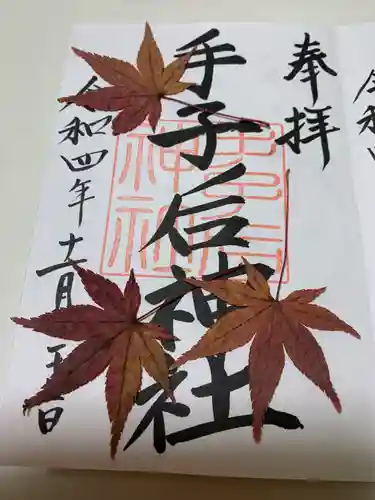 奉拝
手子后神社
手子后神社
令和四年十一月 五日